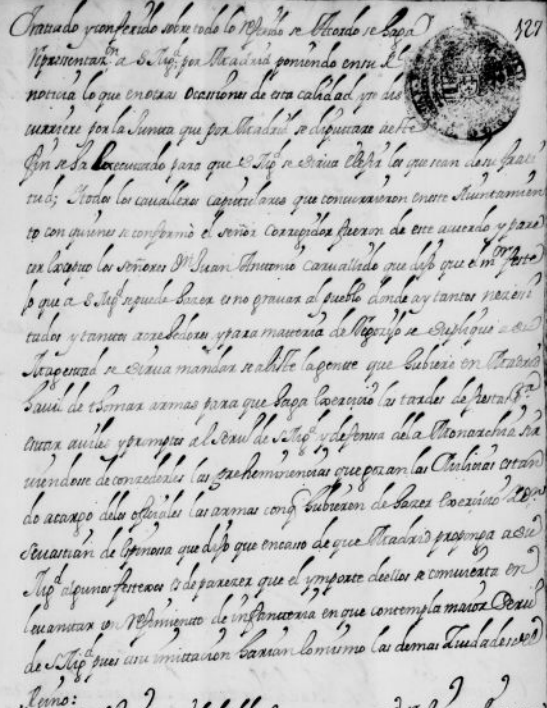 Tratado y conferido sobre todo lo referido se Acordo se haga 127
Representaz.on a S Mg.d por Madrid poniendo en su Rl
noticia lo que en otras Ocassiones de esta calidad y se dis
curriere por la Junta que por Madrid se diputare a este
fin se ha executado para que S Mg.d se sirva elejir los que sean de su grati
tud; Y todos los cavalleros capitulares que concurrieron en este Ayuntamien
to con quienes se conformò el señor Corregidor fueron de este acuerdo y pare
cer excepto los señores Dn Juan Antonio Carvallido que dijo que el m.or feste
jo que a S Mg.d se puede hazer es no gravar al pueblo donde ay tantos nezesi
tados y tantos acrehedores y para materia de Regozijo se suplique a Su
Magestad se sirva mandar se aliste la gente que hubiere en Madrid
havil de thomar armas para que haga exercicio las tardes de fiestas P.a
estar aviles y promptos al Serui.o de S Mg.d y defensa de la Monarchia sir
viendose de conzederles las preheminencias que gozan las Milicias estan
do a cargo de los ofiziales las armas conq hubieren de hazer exercicio Y Dn
Sevastian de Espinosa que dijo que en caso de que Madrid proponga a Su
Mg.d algunos festexos es de parezer que el ymporte de ellos se combierta en
levantar un Rejimiento de infanteria en que contempla maior Servi.o
de S Mg.d pues a su imittacion harian lo mismo las demas Ziudades del
Reino: